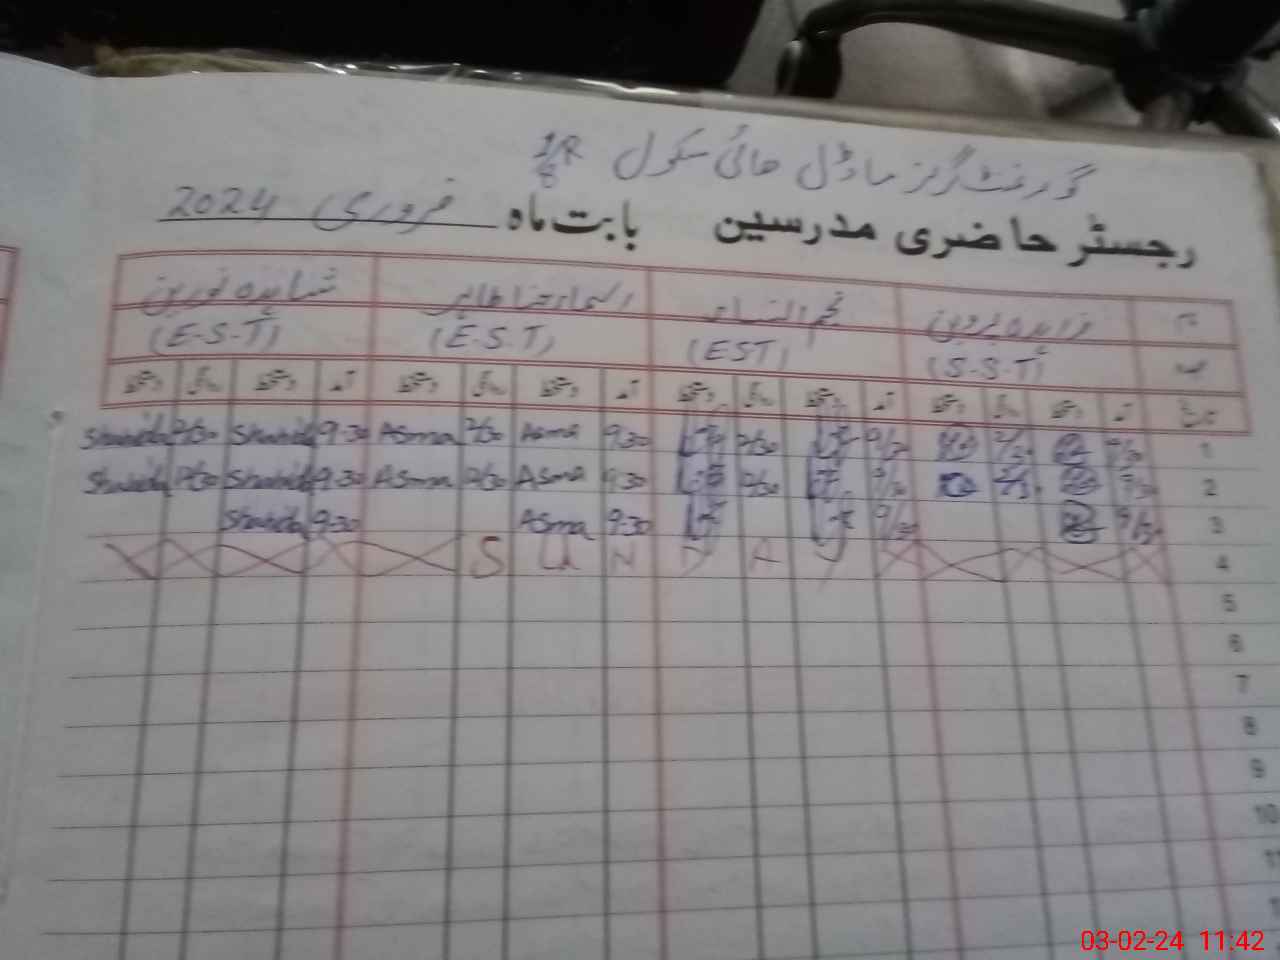 گورنمنٹ گرلز ماڈل ہائی سکول 1/8R
رجسٹر حاضری مدرسین بابت ماہ فروری 2024
نام زاہدہ پروین نجم النساء اسماء طاہر شاہدہ نورین
عہدہ (S-S-T) (EST) (E.S.T) (E-S-T)
تاریخ آمد دستخط روانگی دستخط آمد دستخط روانگی دستخط آمد دستخط روانگی دستخط آمد دستخط روانگی دستخط
1 9/30 2/30 9/30 2/30 9:30 Asma 2/30 Asma 9-30 Shahida 2/30 Shahida
2 9/30 2/30 9/30 2/30 9:30 Asma 2/30 Asma 9-30 Shahida 2/30 Shahida
3 9/30 9/30 9-30 Asma 9-30 Shahida
S U N D A Y 4
5
6
7
8
9
10
11
03-02-24 11:42